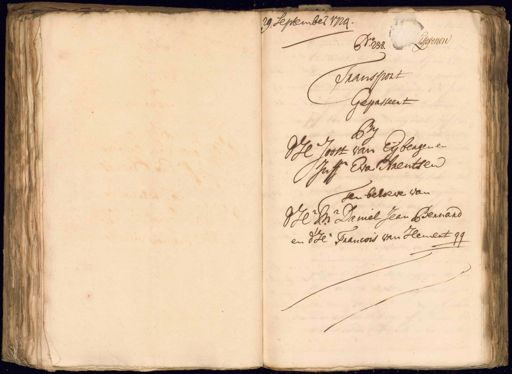 29. September 1729.
Nr. 238.
Transport
Gepasseert
By
d'Hr. Joost van Eybergen en
Juffr. Eva Arentsen
Ten behoeve van
d'Hr. Mr. Daniel Jean Bernard
en d'Hr. Francois van Hement qq